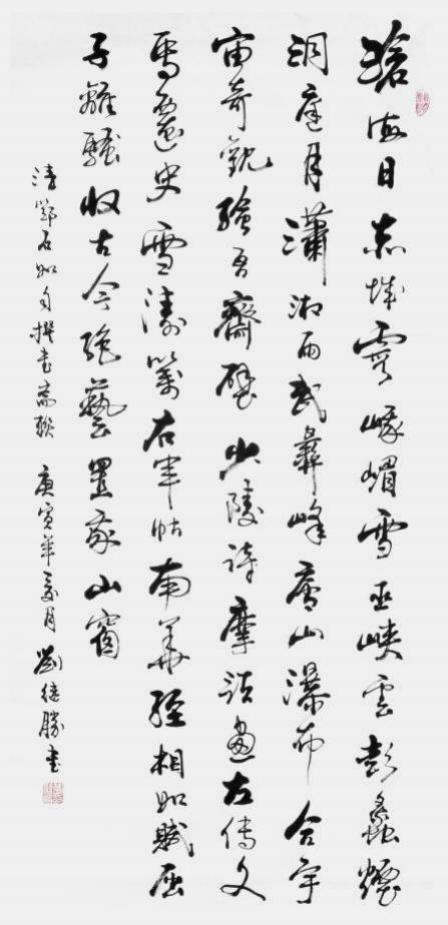 滄海日赤城霞峨嵋雪巫峽雲彭蠡煙
洞庭月瀟湘雨武彝峰廬山瀑布合宇
宙奇觀繪吾齋壁少陵詩摩詰畫左傳文
馬遷史雪濤箋右軍帖南華經相如賦屈
子離騷收古今絕藝置我山窗
清鄧石如自撰書齋聯 庚寅年夏月劉继勝書